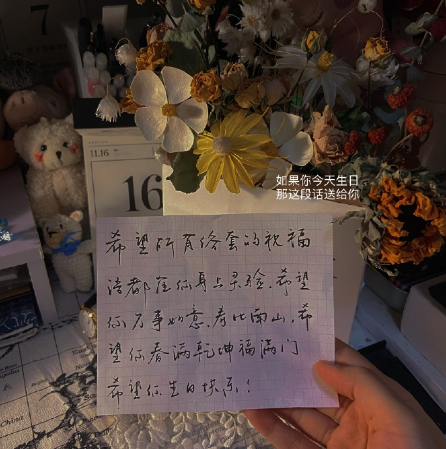 7
11.16
16
如果你今天生日
那这段话送给你
希望所有俗套的祝福
语都在你身上灵验,希望
你万事如意,寿比南山,希
望你春满乾坤福满门
希望你生日快乐!